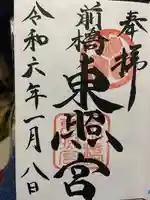 奉拝
前橋
東照宮
令和六年一月八日